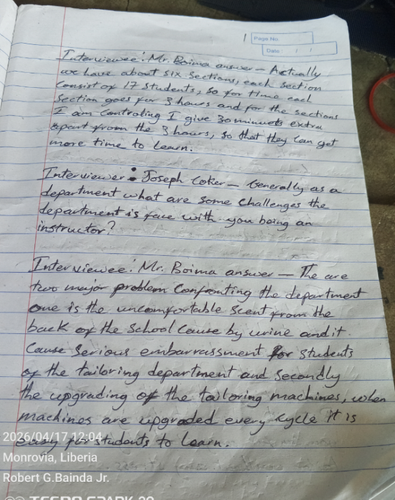 1
Page No:
Date: / /
Interviewee: Mr. Boima answer - Actually
we have about six sections, each section
consist of 17 students, so for time each
section goes for 3 hours and for the sections
I am controling I give 30 minuets extra
apart from the 3 hours, so that they can get
more time to learn.
Interviewer: Joseph Coker - Generally as a
department what are some challenges the
department is face with you being an
instructor?
Interviewee: Mr. Boima answer - The are
two major problem confronting the department
one is the uncomfortable scent from the
back of the school cause by urine and it
cause serious embarrassment for students
of the tailoring department and secondly
the upgrading of the tailoring machines, when
machines are upgraded every cycle it is
easy for students to learn.
2026/04/17 12:04
Monrovia, Liberia
Robert G.Bainda Jr.